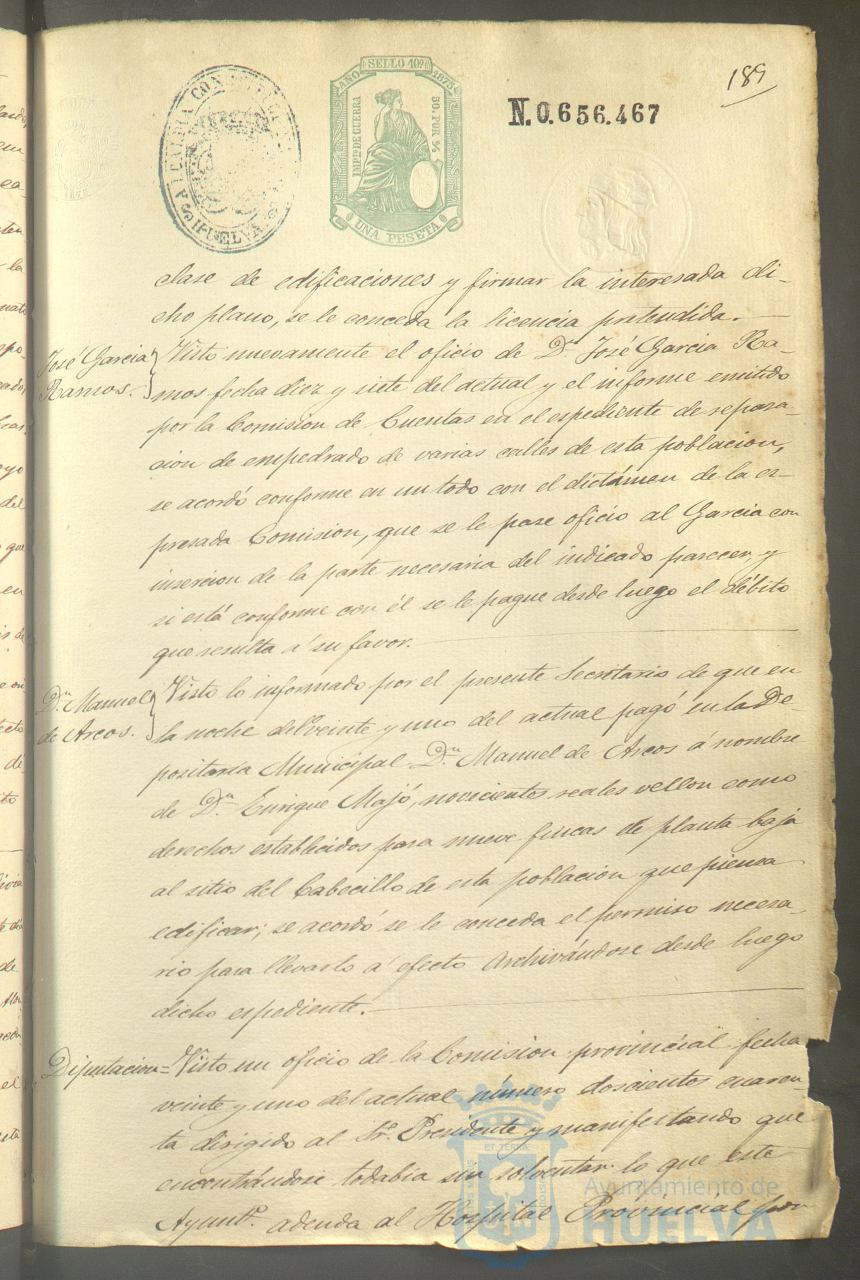 ALCALDIA CONSTITUCIONAL
HUELVA
AÑO SELLO 10º 1878
IMPTO DE GUERRA
50 POR %
UNA PESETA
N.0.656.467
189
clase de edificaciones y firmar la interesada di-
cho plano, se le conceda la licencia pretendida.
José Garcia
Ramos.
Visto nuevamente el oficio de Dn José Garcia Ra-
mos fecha diez y siete del actual y el informe emitido
por la Comision de Cuentas en el espediente de repara-
cion de empedrado de varias calles de esta poblacion,
se acordó conforme en un todo con el dictámen de la es-
presada Comision, que se le pase oficio al Garcia con
insercion de la parte necesaria del indicado parecer, y
si está conforme con él se le pague desde luego el débito
que resulta á su favor.
Dn Manuel
de Arcos.
Visto lo informado por el presente Secretario de que en
la noche del veinte y uno del actual pagó en la De-
positaria Municipal Dn Manuel de Arcos á nombre
de Dn Enrique Majó, novecientos reales vellon como
derechos establecidos para nueve fincas de planta baja
al sitio del Cabecillo de esta poblacion que piensa
edificar; se acordó se le conceda el permiso necesa-
rio para llevarlo á efecto archivándose desde luego
dicho espediente.
Diputacion = Visto un oficio de la Comision provincial fecha
veinte y uno del actual número doscientos cuaren-
ta dirigido al Sr. Presidente y manifestando que
encontrándose todabia sin solventar lo que este
Ayuntº. adeuda al Hospital Provincial por
Ayuntamiento de
HUELVA